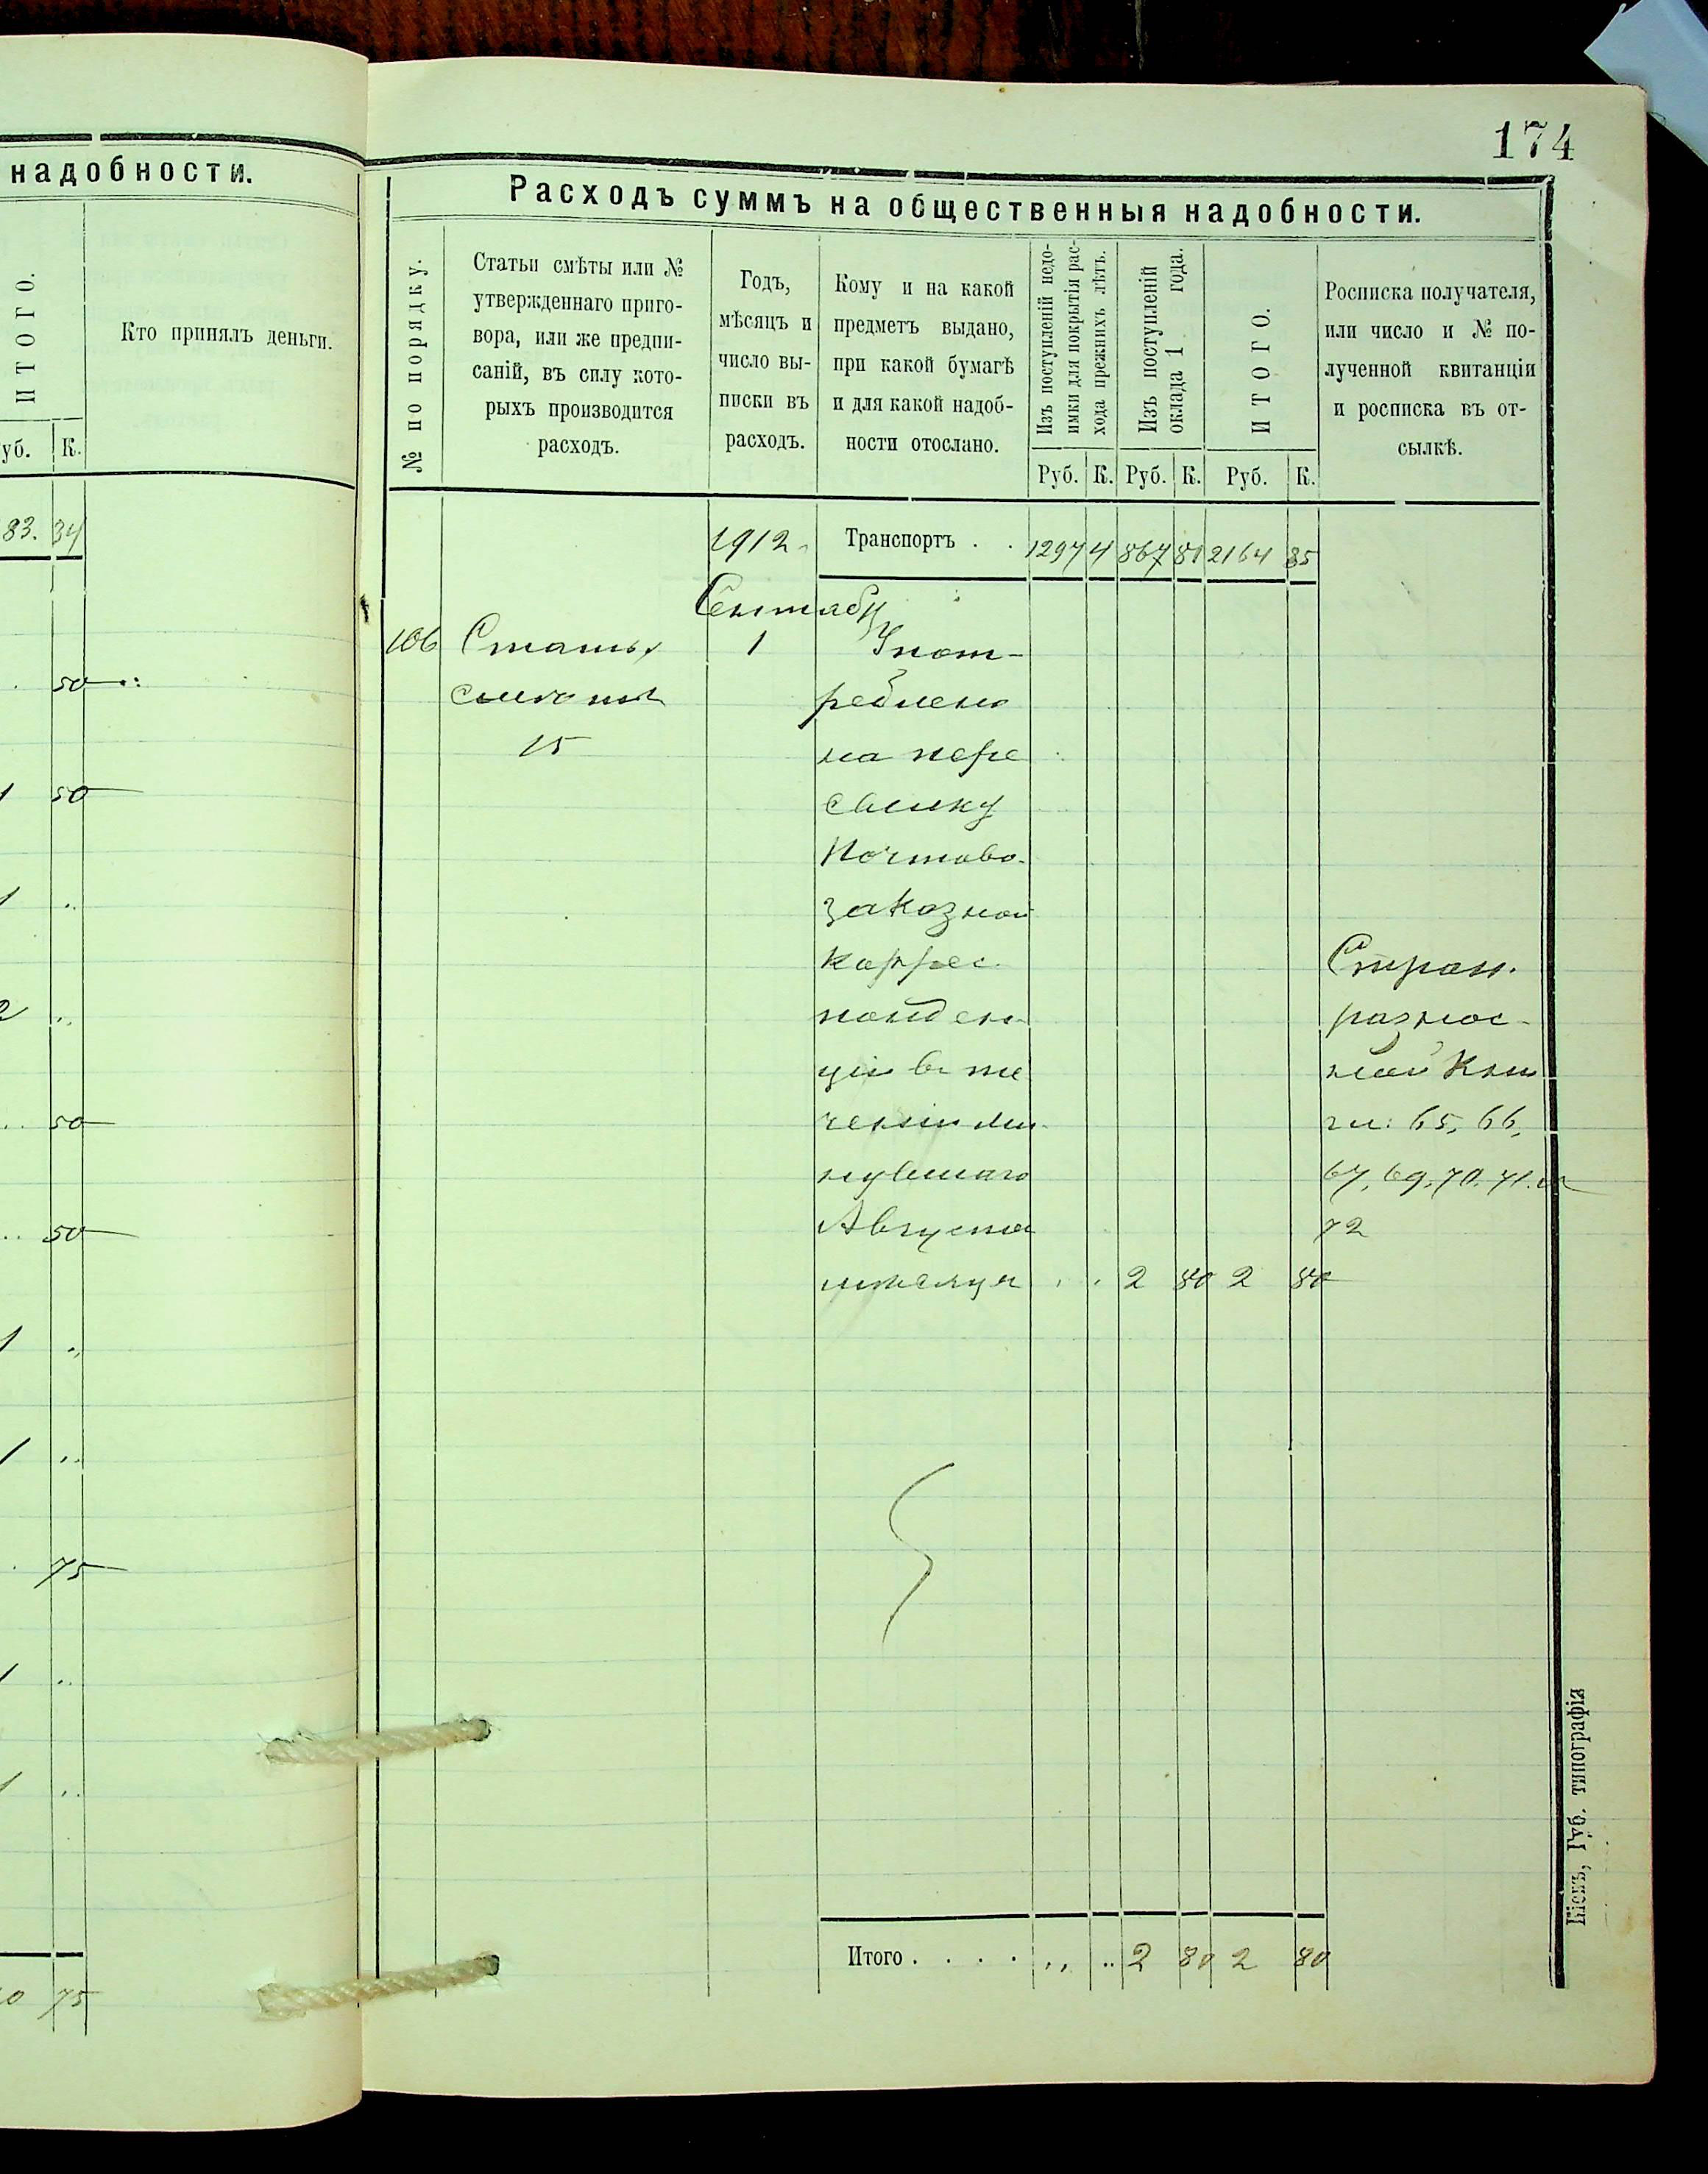 174
надобности.
ИТОГО.
Кто принялъ деньги.
уб. К.
83. 34
50
50
50
50
75
0 75
Расходъ суммъ на общественныя надобности.
№ по порядку.
Статьи смѣты или №
утвержденнаго приго-
вора, или же предпи-
саній, въ силу кото-
рыхъ производится
расходъ.
Годъ,
мѣсяцъ и
число вы-
писки въ
расходъ.
Кому и на какой
предметъ выдано,
при какой бумагѣ
и для какой надоб-
ности отослано.
Изъ поступленій недо-
имки для покрытія рас-
хода прежнихъ лѣтъ.
Изъ поступленій
оклада 1 года.
ИТОГО.
Росписка получателя,
или число и № по-
лученной квитанціи
и росписка въ от-
сылкѣ.
Руб. К. Руб. К. Руб. К.
1912 Транспортъ . . 1297 4 867 81 2164 85
Сентябр
106 Статья 1 Упот-
смѣты реблено
15 на пере
сылку
Почтово-
заказной
Коррес-
понден-
ціи въ те
ченіи ми-
нувшаго
Августа
мѣсяца . . 2 80 2 80
Стран.
разнос-
ной Кни
ги: 65, 66,
67, 69, 70, 71 и
72
Итого . . . . 2 80 2 80
Кіевъ, Губ. типографія